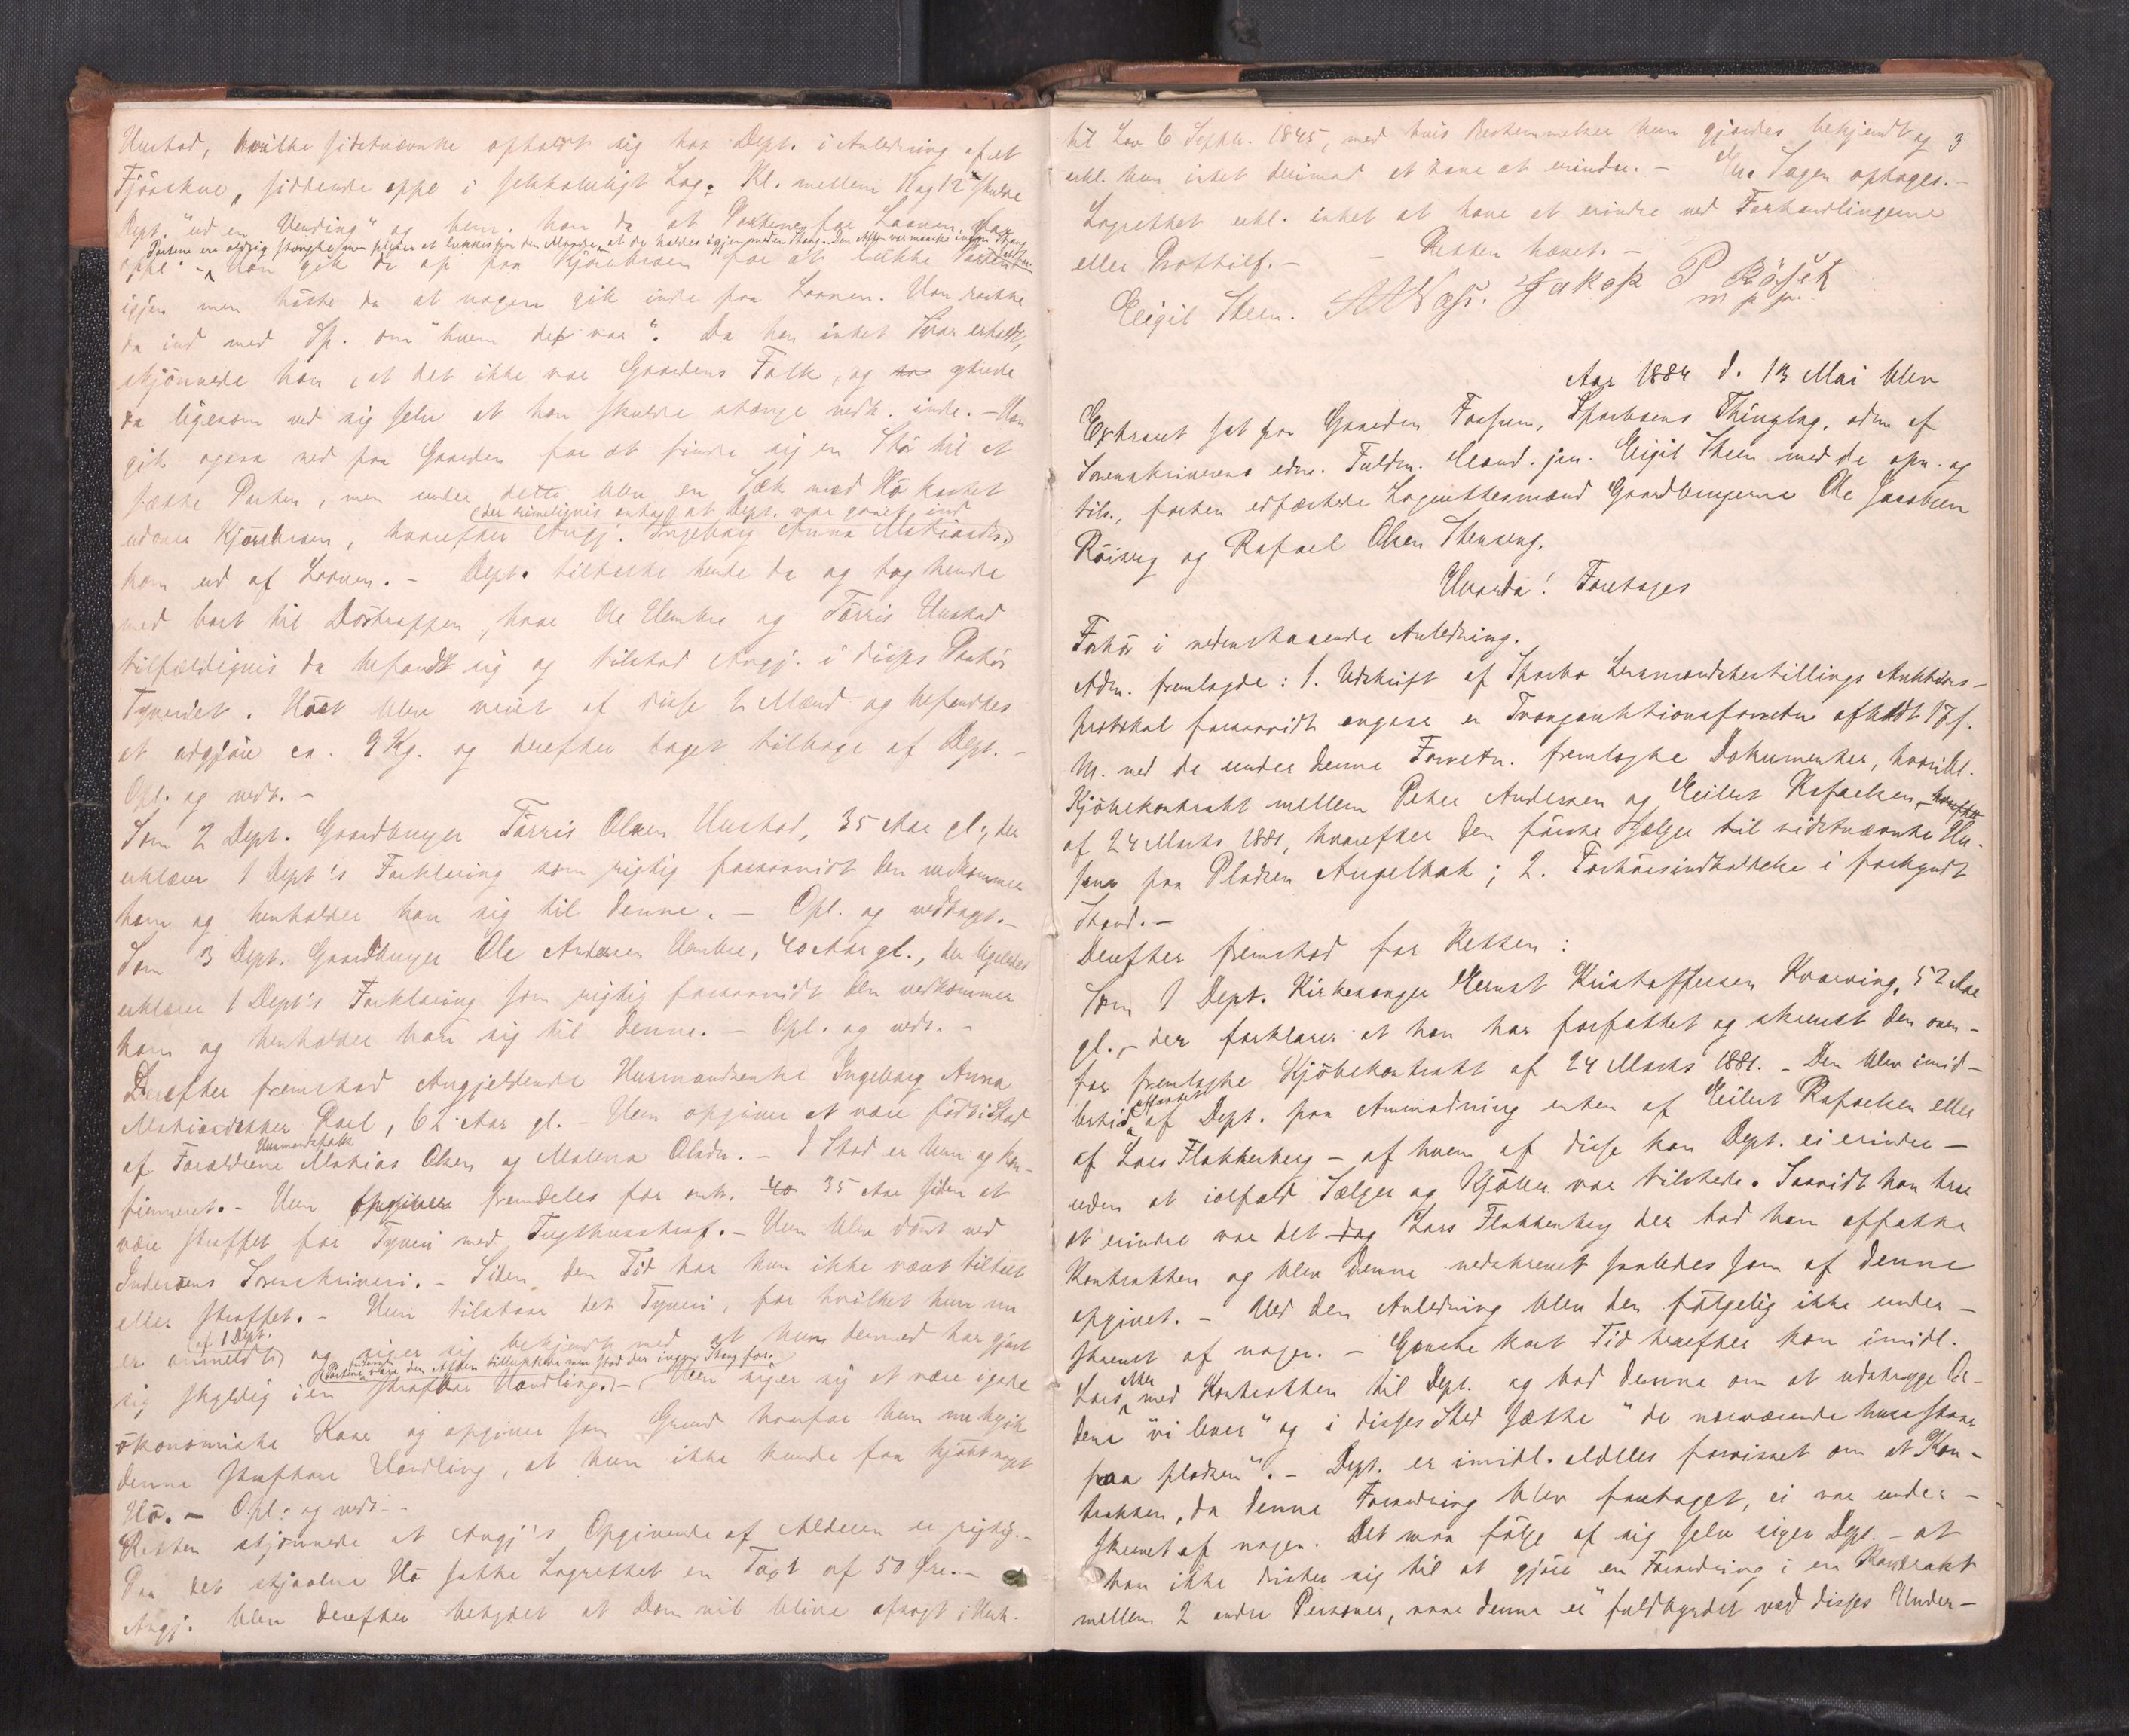 Unstad, hvilke sidstnævnte opholdt sig hos Dept. i Anledning af et
Fjöaskue, siddende oppe i selskabeligt Lag. Kl. mellem 11 og 12 skulde
Dept. "ud en Vending" og bem. han da at Portene for Laaven stod
Portene ere aldrig stængte, men pleier at lukkes for den Maade, at de holdes igjen med en Stang. Den Aften var maaske ingen Stang
oppe. - Han gik da op paa Kjörebroen for at lukke Porten
igjen men hörte da at nogen gik inde paa Laaven. Han raabte
da ind med Sp. om "hvem det var". Da han intet Svar erholdt,
skjönnede han, at det ikke var Gaardens Folk, og ytrede
da ligesom ved sig selv at han skulde stænge vedk. inde. - Han
gik ogsaa ned paa Gaarden for at finde sig en Stör til at
sætte Porten, men under dette blev en Sæk med Hö kastet
(der rimeligvis antog at Dept. var gaaet ind)
udover Kjörebroen, hvorefter Angj. Ingeborg Anna Matiasdtr.
kom ud af Laaven. - Dept. tilbageholdt hende da og tog hende
med bort til Dörtrappen, hvor Ole Vembre og Törris Unstad
tilfældigvis da befandt sig og tilstod Angj. i disses Påhör
Tyveriet. Höet blev veiet af disse 2 Mænd og befandtes
at udgjöre ca. 9 Kg. og derefter taget tilbage af Dept. -
Opl. og vedt. -
Som 2 Dept. Gaardbruger Törris Olsen Unstad, 35 Aar gl., der
erklærer 1 Dept's Forklaring som rigtig forsaavidt den vedkommer
ham og henholder han sig til denne. - Opl. og vedtaget. -
Som 3 Dept. Gaardbruger Ole Andersen Vembre, 40 Aar gl., der ligeledes
erklærer 1 Dept's Forklaring som rigtig forsaavidt den vedkommer
ham og henholder han sig til denne. - Opl. og vedt. -
Derefter fremstod Angjeldende Husmandsenke Ingeborg Anna
Matiasdatter Roel, 62 Aar gl. - Hun opgiver at være född i Stod
Husmandsfolk
af Forældrene Matias Olsen og Malena Olsdtr. - I Stod er hun og kon-
firmeret. - Hun opgiver fremdeles for omtr. 40 35 Aar siden at
være straffet for Tyveri med Tugthusstraf. - Hun blev dömt ved
Inderöens Sorenskriveri. - Siden den Tid har hun ikke været tiltalt
eller straffet. - Hun tilstaar det Tyveri, for hvilket hun nu
af 1 Dept.
er anmeldt og siger sig bekjendt med at hun dermed har gjort
Portene vare den Aften tillukkede men stod der ingen Stang for.
sig skyldig i en strafbar Handling. - Hun siger sig at være i gode
ökonomiske Kaar og opgiver som Grund hvorfor hun nu begik
denne strafbare Handling, at hun ikke kunde faa kjöbt noget
Hö. - Opl. og vedt. -
Retten skjönnede at Angj's Opgivende af Alderen er rigtig. -
Paa det stjaalne Hö satte Lagrettet en Taxt af 50 Öre. -
Angj. blev derefter betydet at Dom vil blive afsagt i Henh.
3
til Lov 6 Septbr. 1845, med hvis Bestemmelser hun gjordes bekjendt og
erkl. hun intet derimod at have at erindre. - Sagen optoges. -
Lagrettet erkl. intet at have at erindre ved Forhandlingerne
eller Prottilf. - - Retten hævet. -
Eigil Steen. Jakob P Rösek
m p p.
Aar 1884 d. 13 Mai blev
Extraret sat paa Gaarden Fossum, Sparboens Thinglag, adm. af
Sorenskriverens edsv. Fuldm. Cand. jur. Eigil Steen med de opn. og
tils., forhen edfæstede Lagrettesmænd Gaardbrugerne Ole Jacobsen
Röising og Rafael Olsen Stenseng.
Hvorda! Foretages
Forhör i nedenstaaende Anledning.
Adm. fremlagde: 1. Udskrift af Sparbo Lensmandsbestillings Auktions-
protokol forsaavidt angaar en Tvangsauktionsforretn. afholdt 17 f.
M. med de under denne Forretn. fremlagte Dokumenter, hvoribl.
Kjöbekontrakt mellem Peter Andersen og Eilert Rafaelsen
af 24 Marts 1881, hvorefter den förste sælger til sidstnævnte Hu-
sene paa Pladsen Angelbak; 2. Forhörsindkaldelse i forkyndt
Stand. -
Derefter fremstod for Retten:
Som 1 Dept. Kirkesanger Ernst Kristoffersen Kvarving, 52 Aar
gl., der forklarer at han har forfattet og skrevet den oven-
for fremlagte Kjöbekontrakt af 24 Marts 1881. - Den blev imid-
affattet
lertid af Dept. paa Anmodning enten af Eilert Rafaelsen eller
af Lars Flakkenberg - af hvem af disse kan Dept. ei erindre -
uden at ialfald Sælger og Kjöber var tilstede. Saavidt han tror
at erindre var det dog Lars Flakkenberg der bad ham affatte
Kontrakten og blev denne nedskrevet saaledes som af denne
opgivet. - Ved den Anledning blev den fölgelig ikke under-
skrevet af nogen. - Ganske kort Tid herefter kom imidl.
atter
Lars med Kontrakten til Dept. og bad denne om at udstryge Or-
dene "vi lever" og i disses Sted sætte "de nærværende huse staar
paa pladsen". - Dept. er imidl. aldeles forvisset om at Kon-
trakten, da denne Forandring blev foretaget, ei var under-
skrevet af nogen. Det maa fölge af sig selv siger Dept. - at
han ikke drister sig til at gjöre en Forandring i en Kontrakt
mellem 2 andre Personer, naar denne er fuldbyrdet ved disses Under-